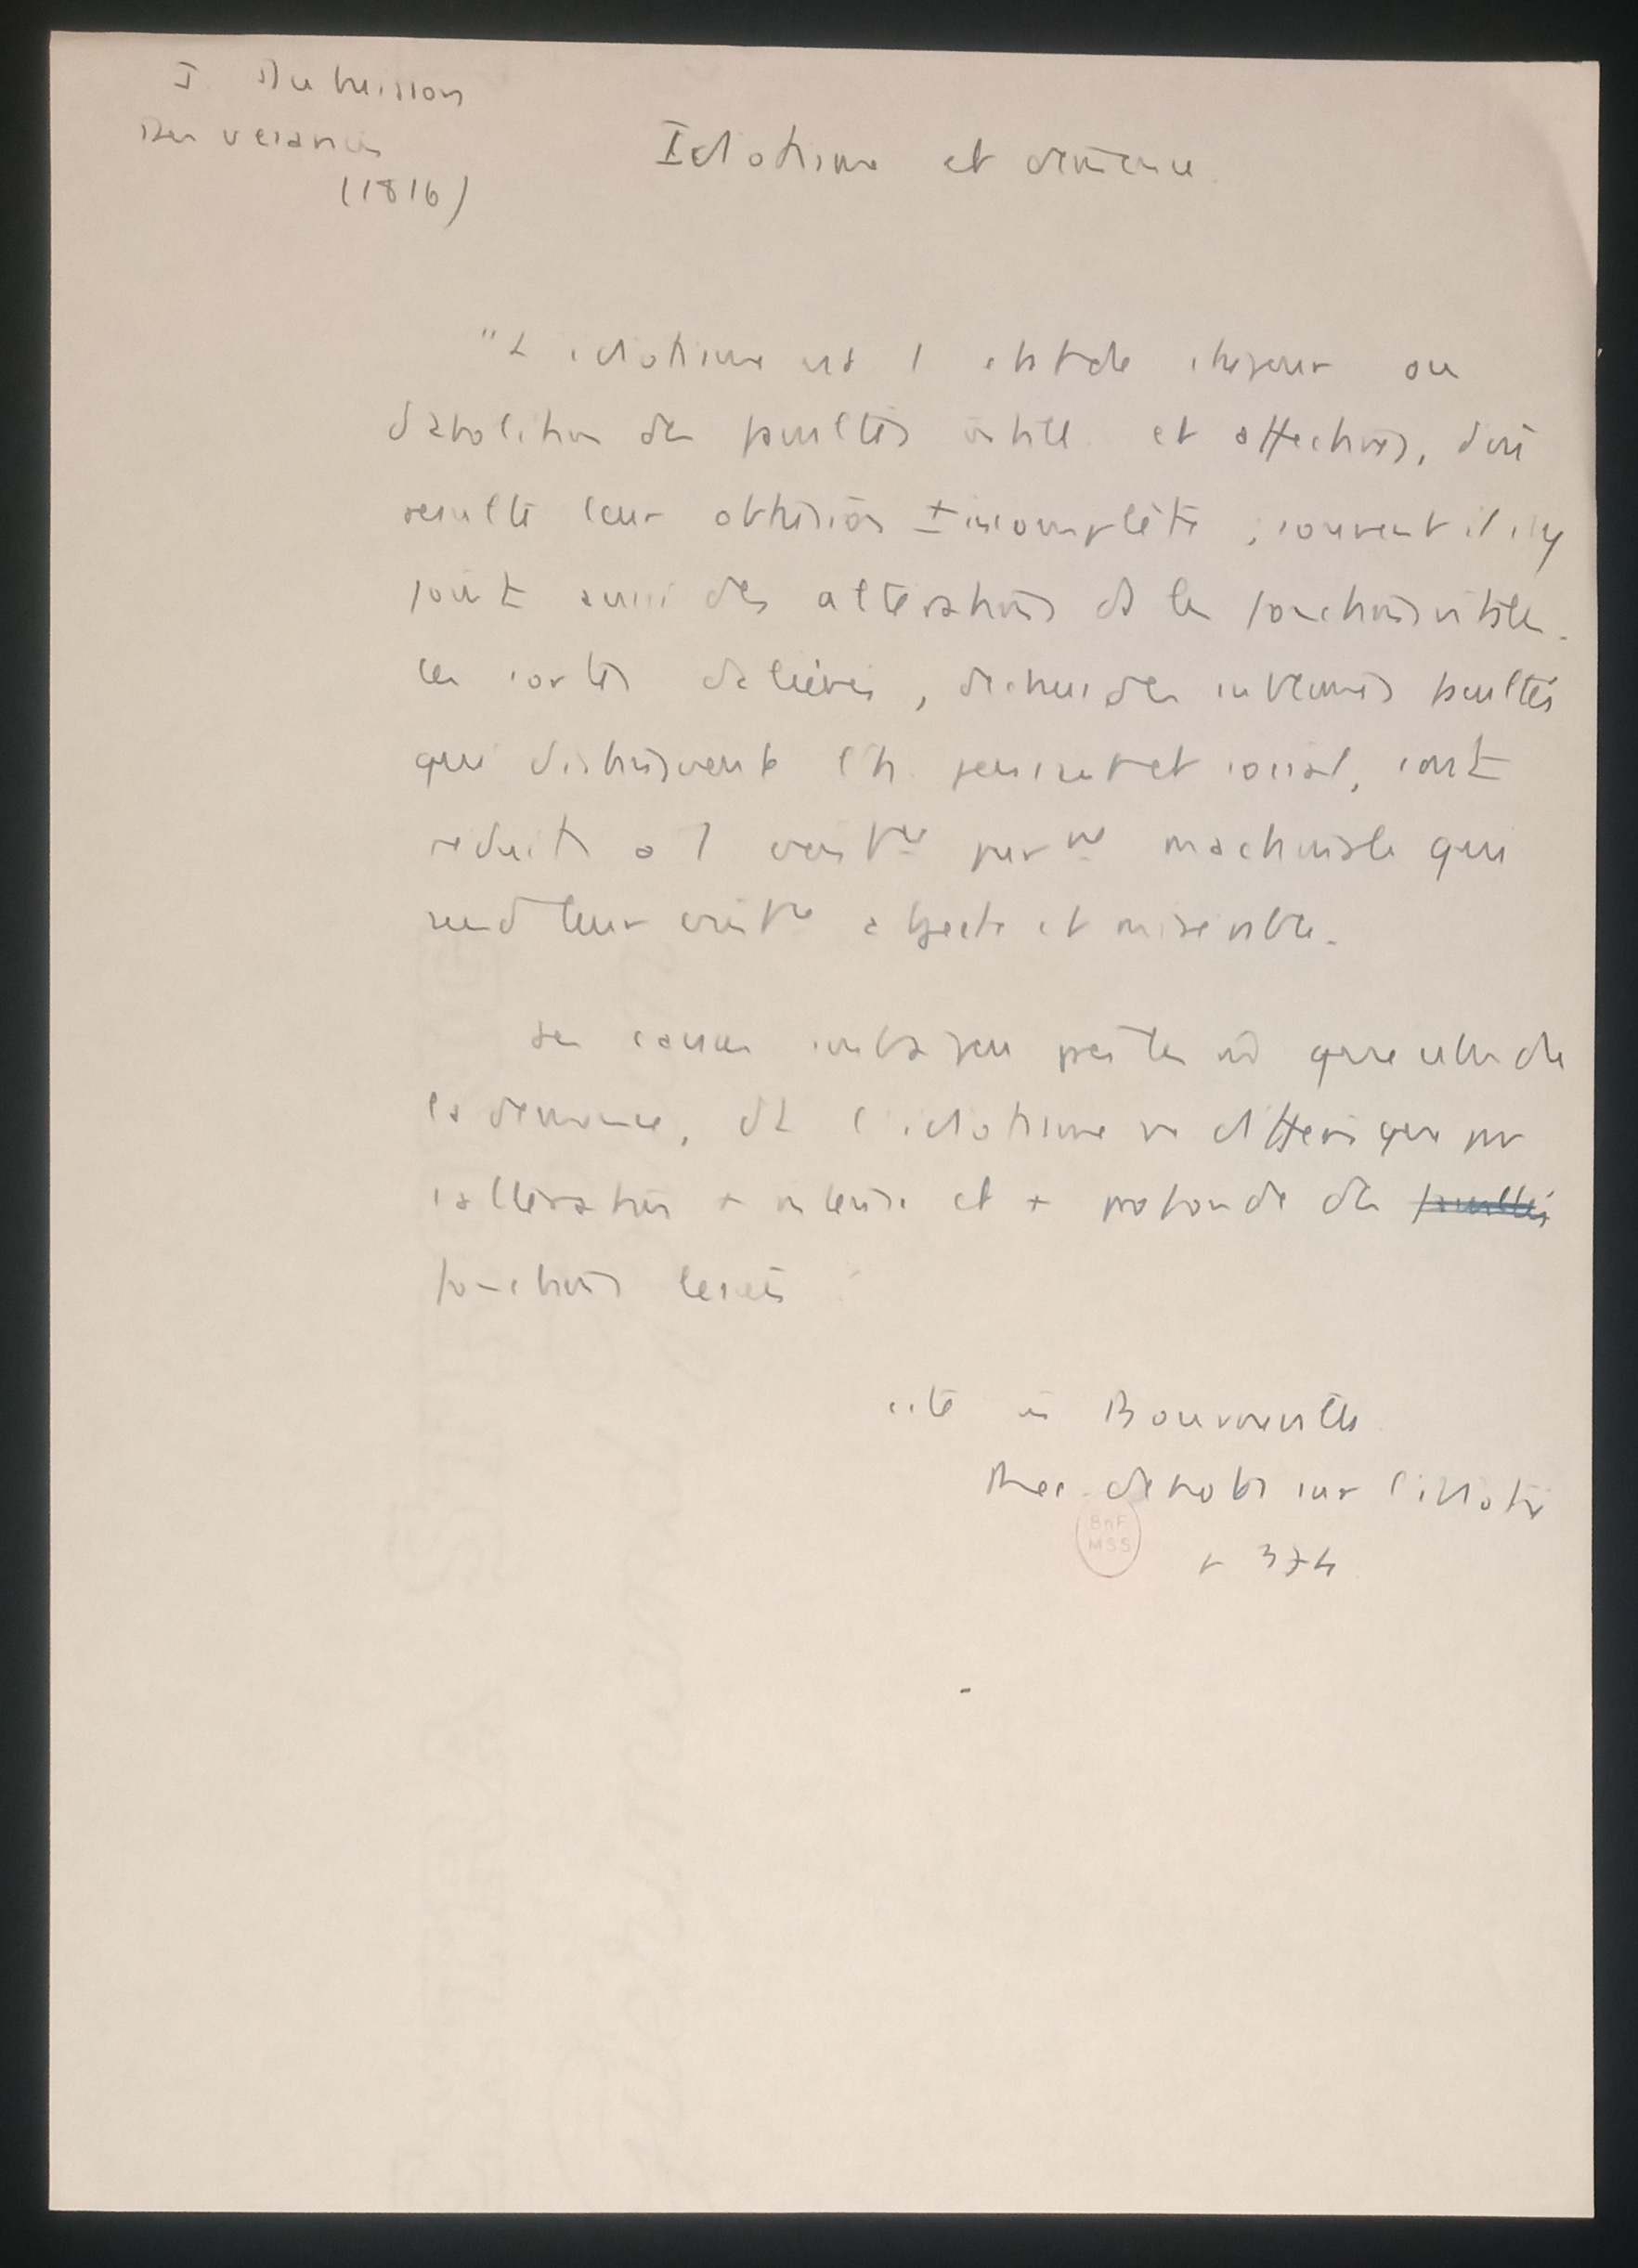 J. Dubuisson
Des vésanies
(1816)
Idiotisme et démence.
"L'idiotisme est 1 état de stupeur ou
d'abolition des facultés intell. et affectives, d'où
résulte leur obtusion ± incomplète ; souvent il s'y
joint aussi des altérations ds les fonctions vitales.
Ces sortes d'aliénés, déchus des sublimes facultés
qui distinguent l'h. pensant et social, sont
réduits à 1 exist ce purnt machinale qui
rend leur exist ce abjecte et misérable.
Ses causes sont à peu près les m que celles de
la démence, dt l'idiotisme ne diffère que par
l'altération + intense et + profonde des facultés
fonctions lésées
cité in Bourneville
Rec. de notes sur l'idiotie
p 374
BnF
MSS